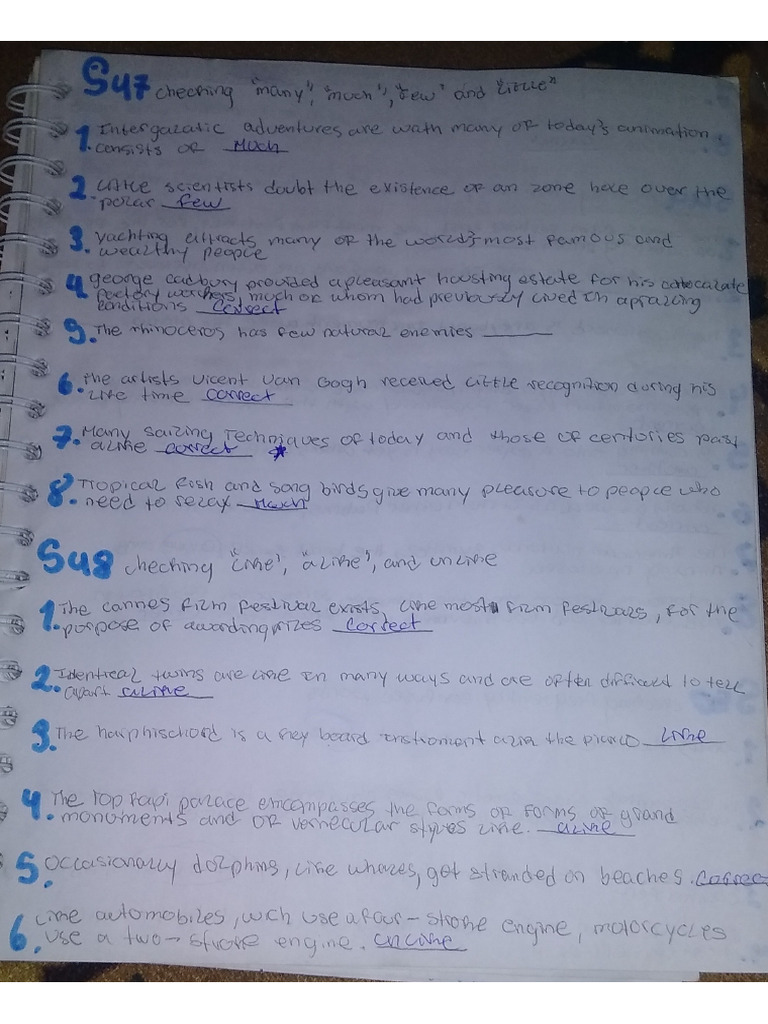 S47 checking "many", "much", "few" and "little"
1. Intergalatic adventures are wath many of today's animation
consists of Much
2. Little scientists doubt the existence of an zone hole over the
polar few
3. yachting attracts many of the world's most famous and
wealthy people
4. george cadbury provided a pleasant housting estate for his
factory workers, much of whom had previously lived in
conditions correct
5. The rhinoceros has few natural enemies
6. The artists Vicent Van Gogh received little recognition during his
life time correct
7. Many sailing Techniques of today and those of centories past
alike correct
8. Tropical fish and song birds give many pleasure to people who
need to relax Much
S48 checking "like", "alike", and unlike
1. The cannes film festival exists, like most film festivals, for the
purpose of awarding prizes correct
2. Identical twins are like in many ways and are often difficult to tell
apart alike
3. The harphischord is a key board instroment alik the piano like
4. The Top kapi palace emcompasses the forms of forms of grand
monuments and of vernecular styles like. alike
5. Occasionally dolphins, like whales, get stranded on beaches. correc
6. Like automobiles, wch use a four-stroke engine, motorcycles
use a two-stroke engine. unlike